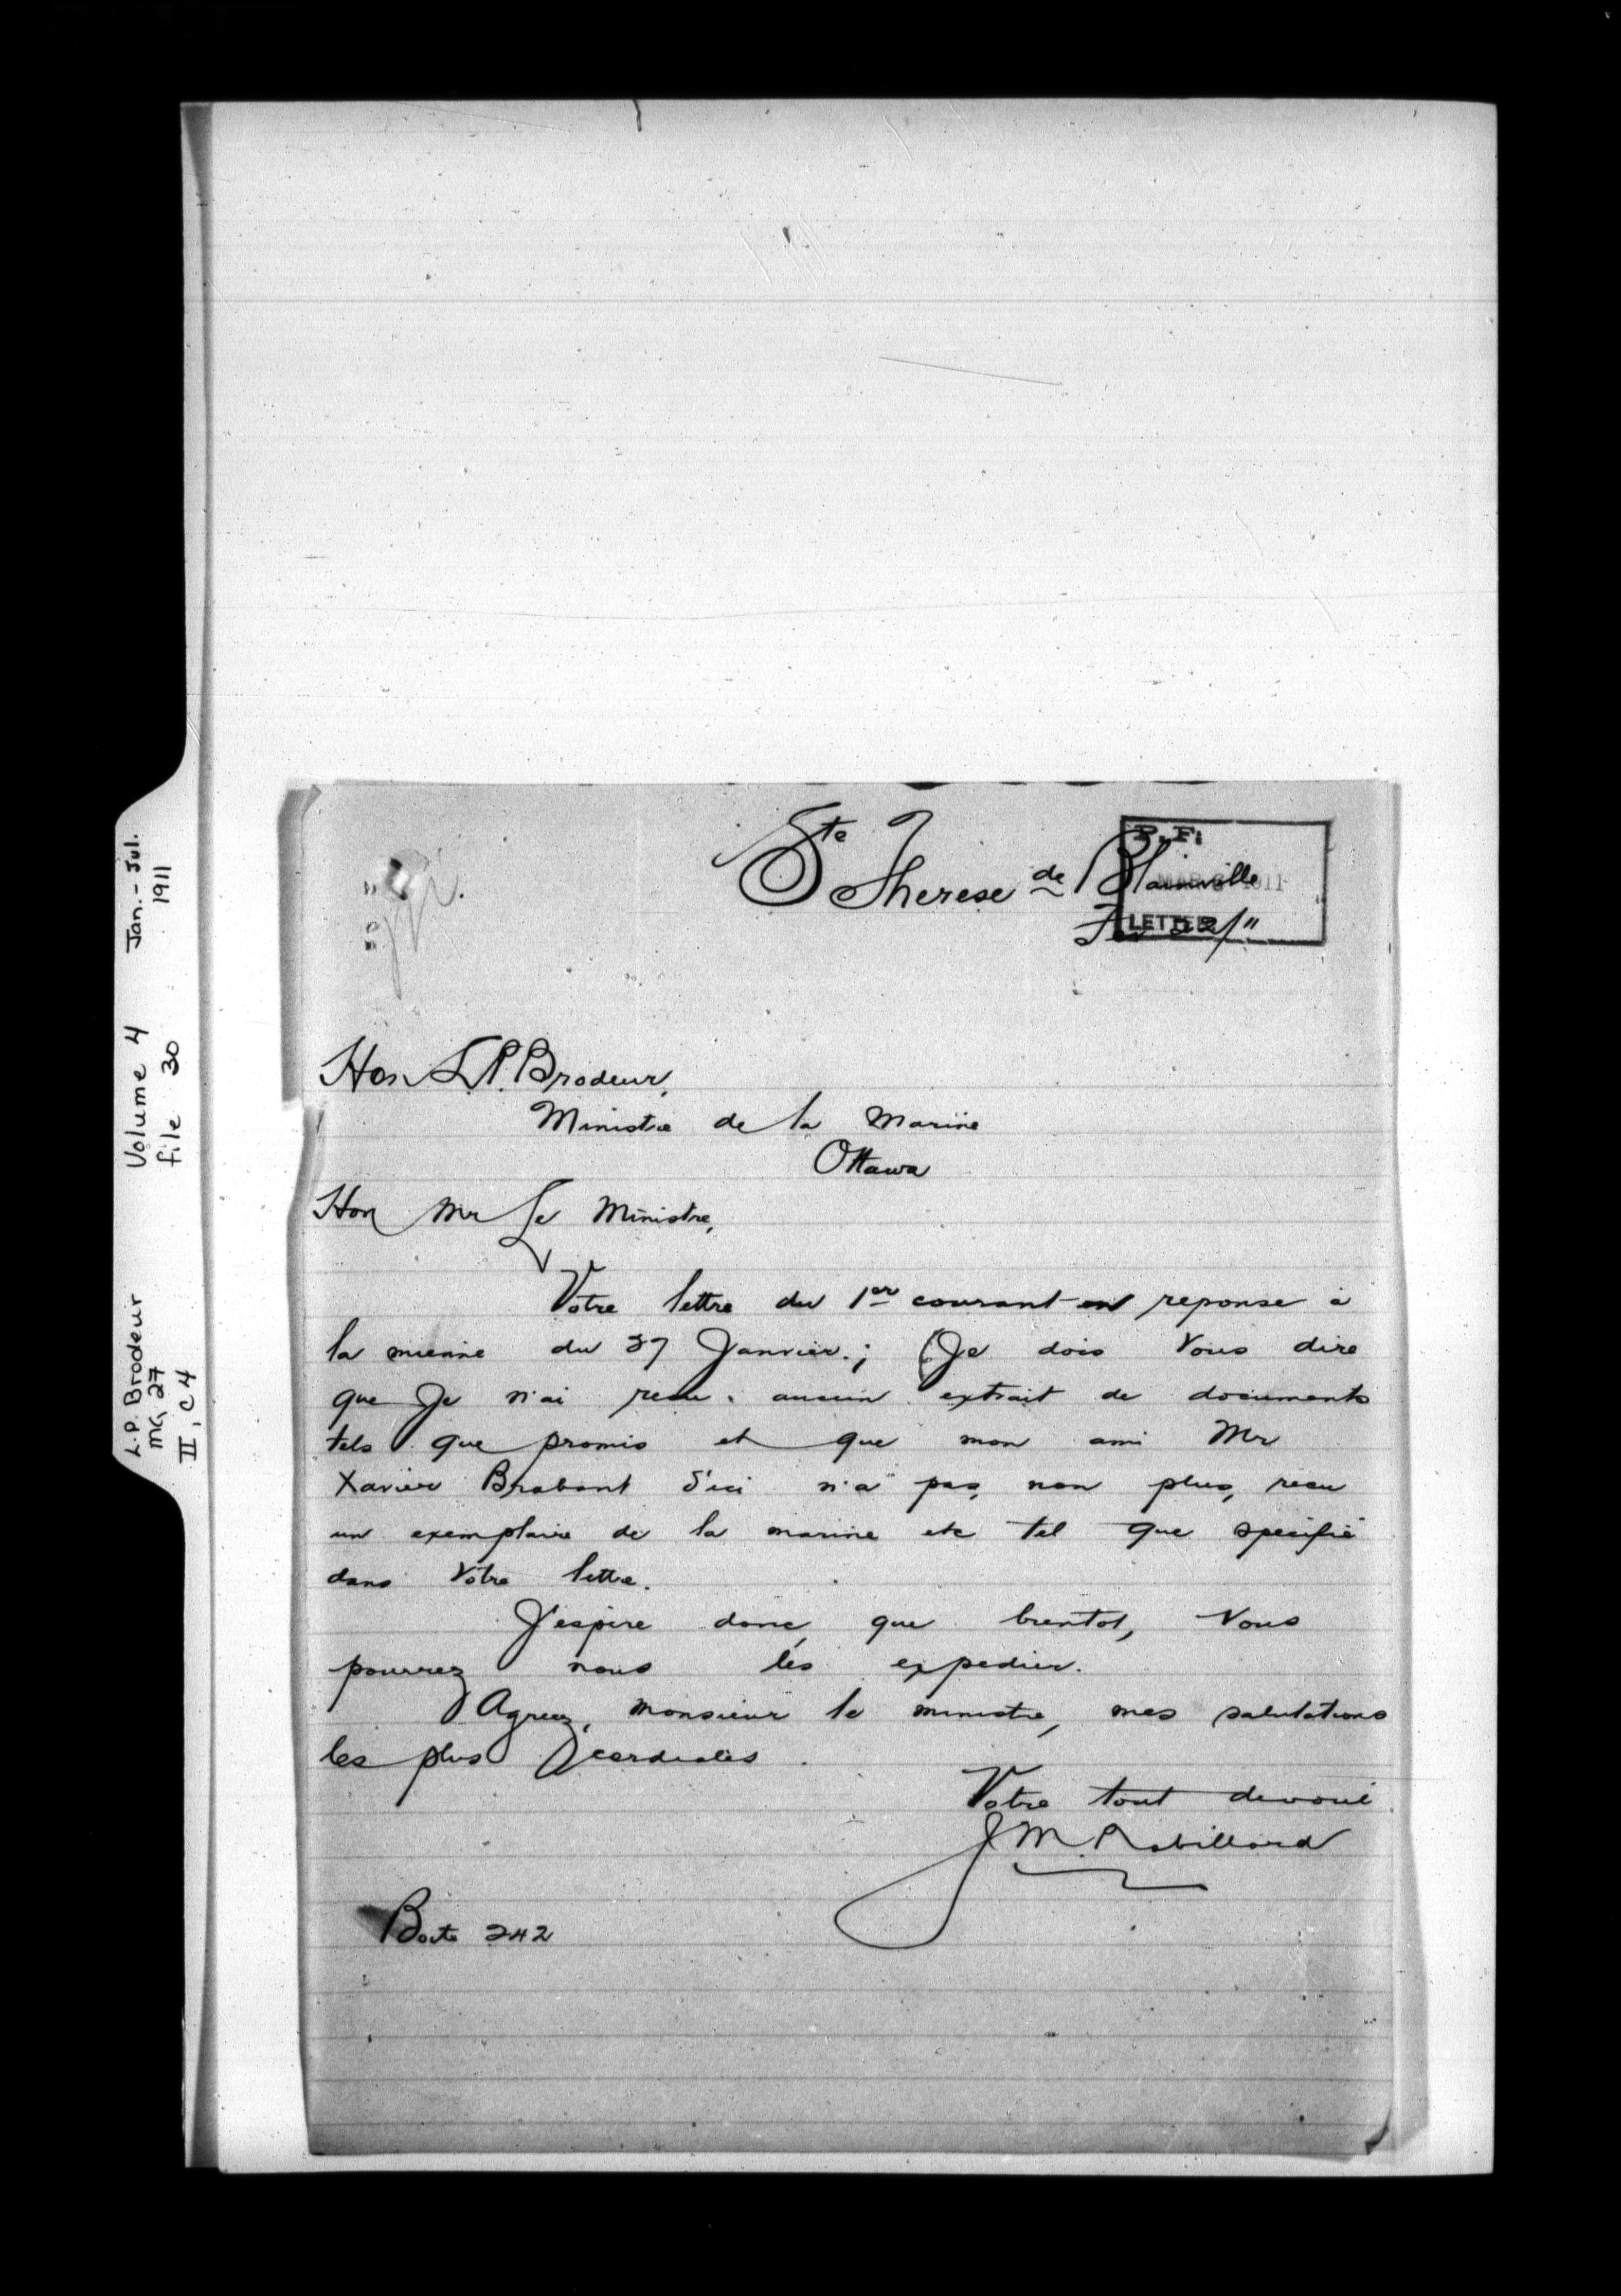 L.P. Brodeur Volume 4 Jan.- Jul.
MG 27 file 30 1911
II, C 4
P. F.
LETTER
Ste Therese de Blainville
Fev 22/11
Hon L.P. Brodeur,
Ministre de la Marine
Ottawa
Hon Mr Le Ministre,
Votre lettre du 1er courant en reponse à
la mienne du 27 Janvier.; Je dois Vous dire
que Je n'ai recu aucun extrait de documents
tels que promis et que mon ami Mr
Xavier Brabant d'ici n'a pas, non plus, recu
un exemplaire de la marine etc tel que specifié
dans Votre lettre.
J'espère donc, que bientot, Vous
pourrez nous les expedier.
Agreez, monsieur le ministre, mes salutations
les plus cordiales.
Votre tout devoué
J M. Robillard
Boite 242